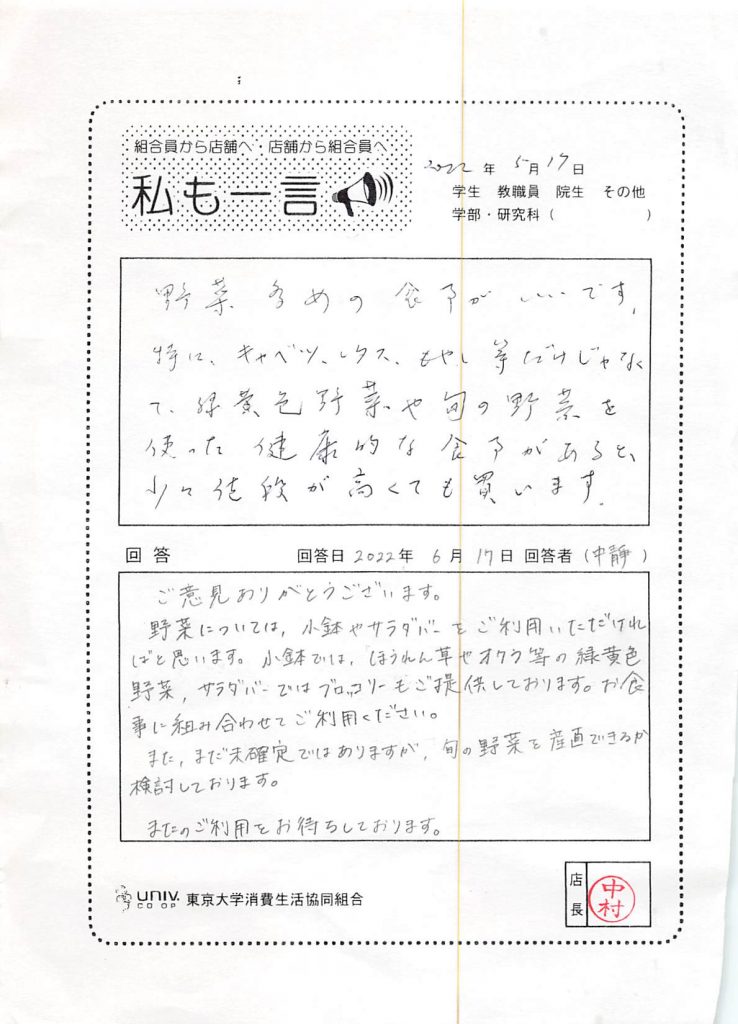 組合員から店舗へ・店舗から組合員へ
私も一言
2022年 5月17日
学生 教職員 院生 その他
学部・研究科（ ）
野菜多めの食事がいいです。
特に、キャベツ、レタス、もやし等だけじゃなく
て、緑黄色野菜や旬の野菜を
使った健康的な食事があると、
少々値段が高くても買います。
回答 回答日 2022年 6月 17日 回答者（中静）
ご意見ありがとうございます。
野菜については、小鉢やサラダバーをご利用いただけれ
ばと思います。小鉢では、ほうれん草やオクラ等の緑黄色
野菜、サラダバーではブロッコリーもご提供しております。お食
事に組み合わせてご利用ください。
また、まだ未確定ではありますが、旬の野菜を産直できるか
検討しております。
またのご利用をお待ちしております。
UNIV. CO-OP 東京大学消費生活協同組合
店長 中村